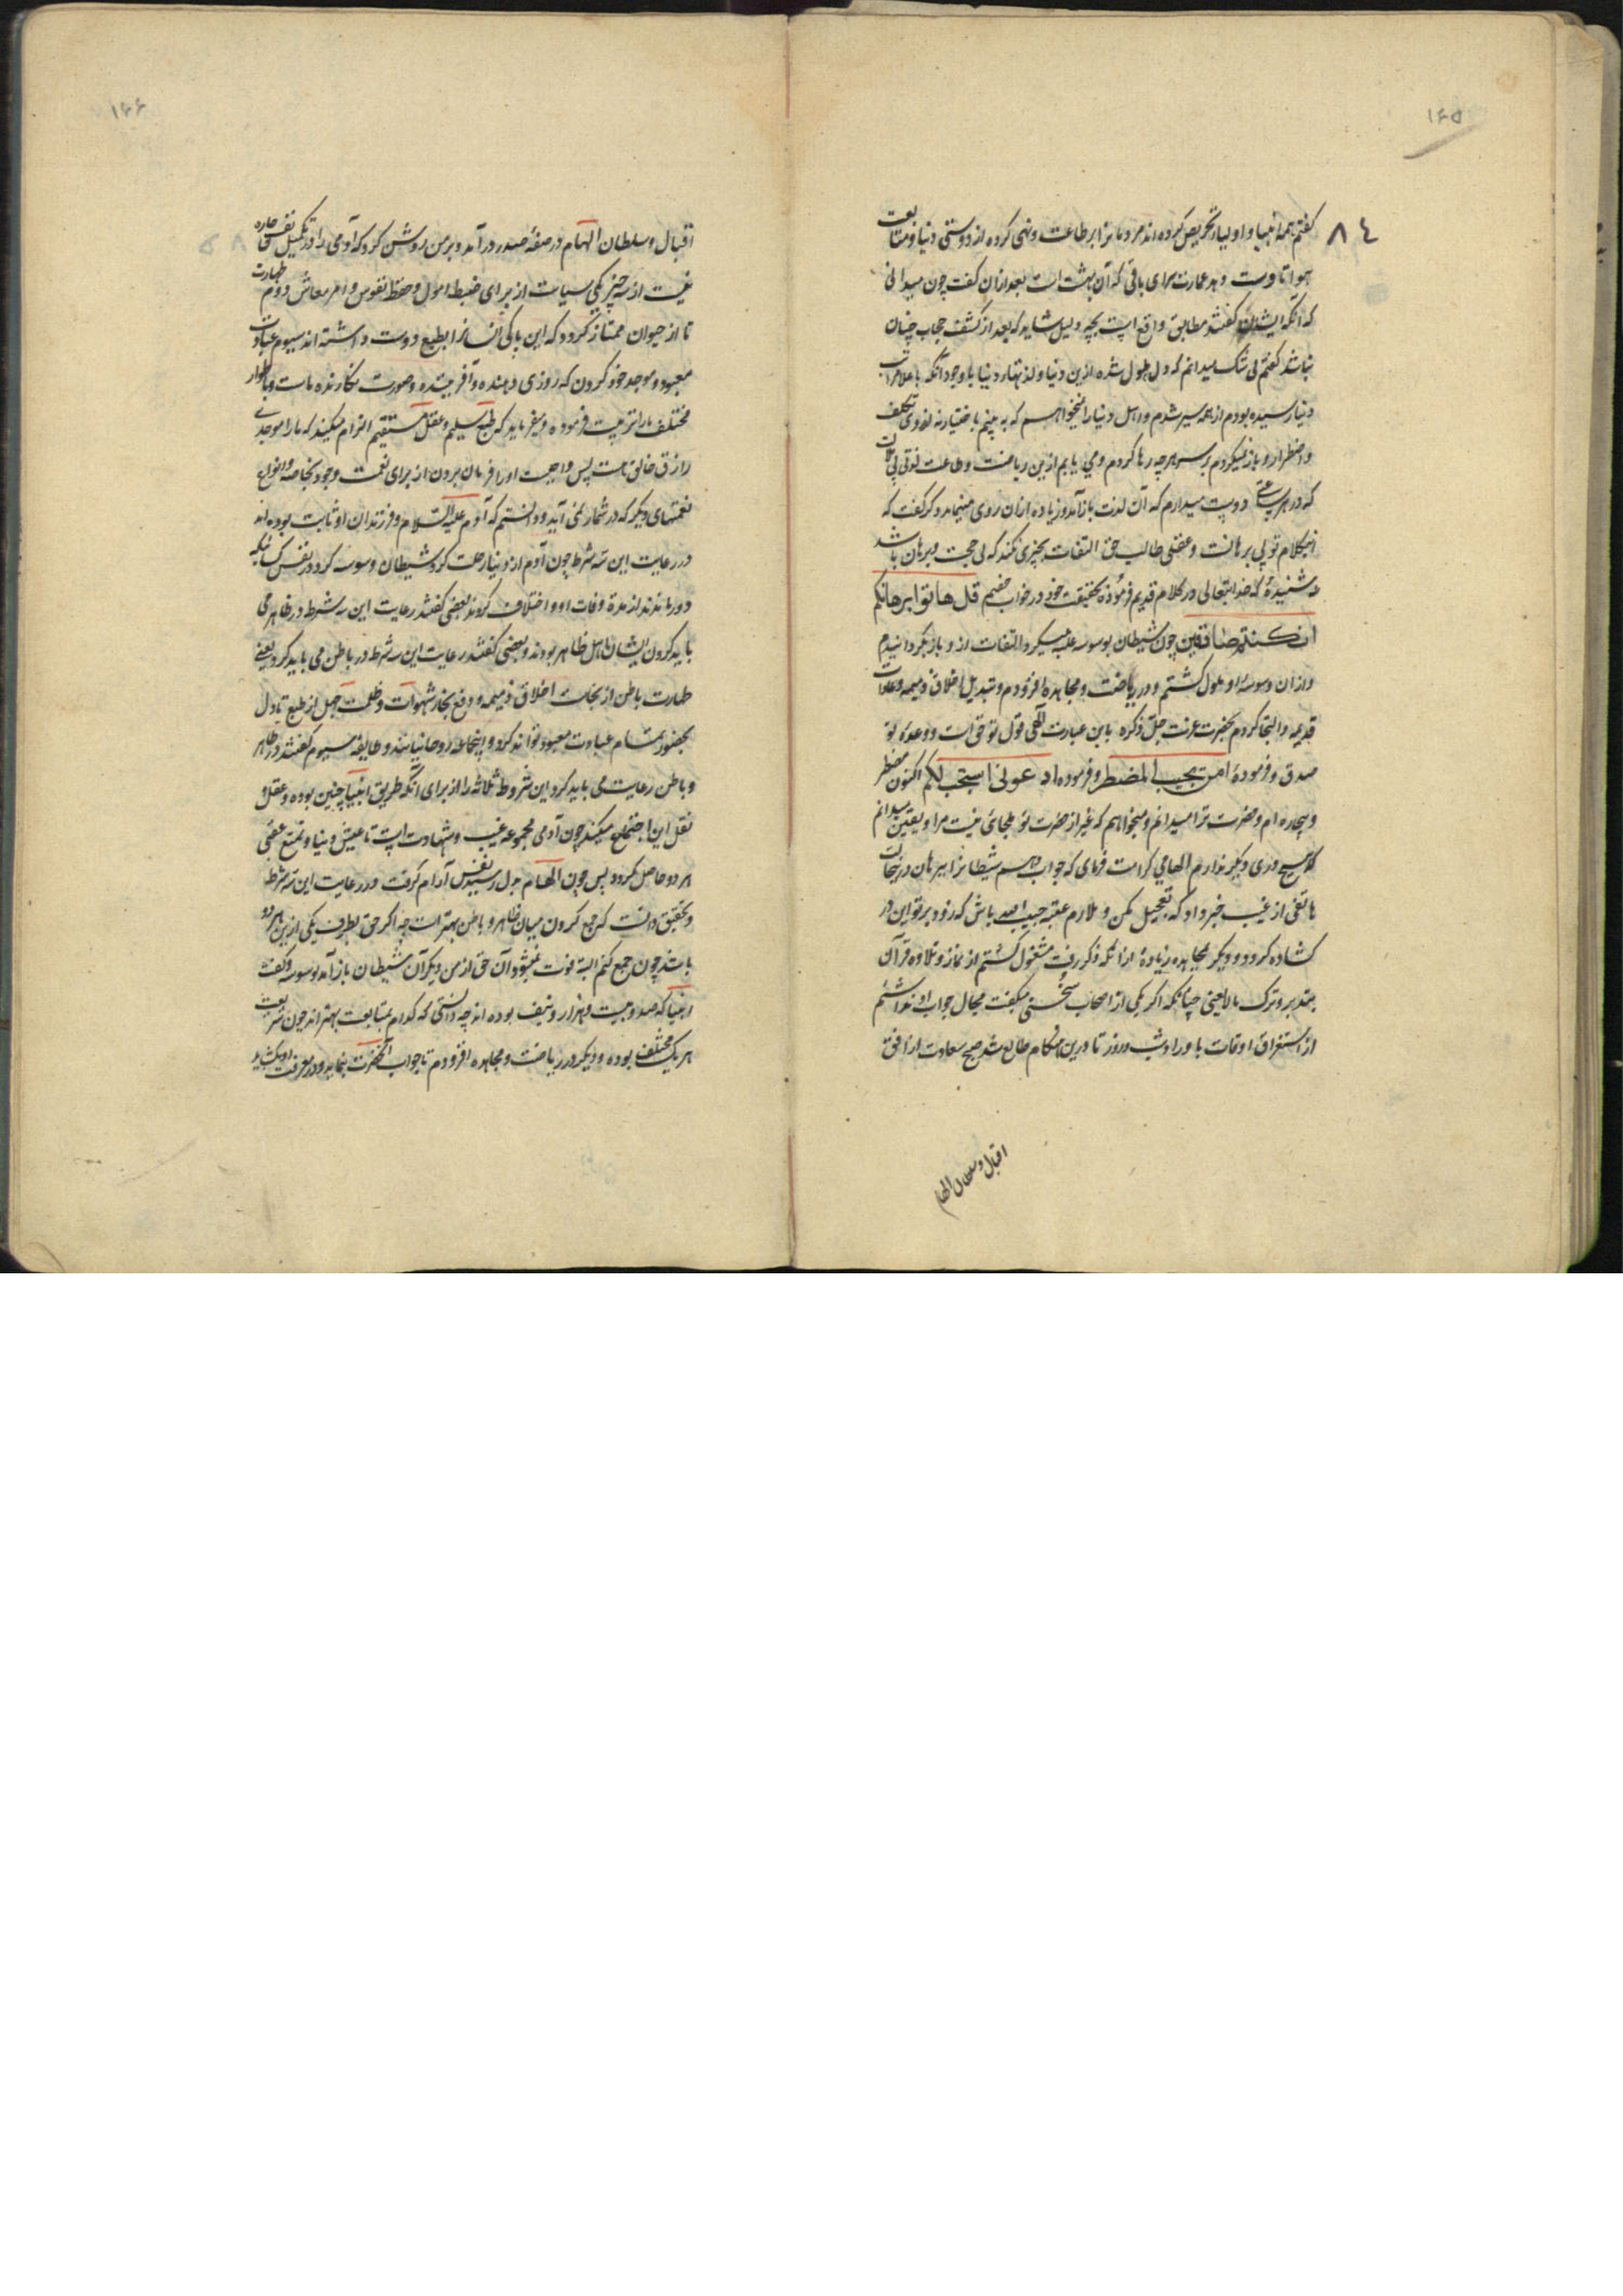 ۱۶۵
۸٤
کفتم همه انبیا و اولیا تحریص کرده اند مردمانرا بر طاعت و نهی کرده از دوستی دنیا و متابعت
هوا تا دست دهد عمارت سرای باقی که آن بهشت است بعد ازان کفت چون میدانی
که آنکه ایشان کفتند مطابق واقع است بچه دلیل شاید که بعد از کشف حجاب چنان
نباشد کفتم بی شک میدانم که دل ملول شده ازین دنیا و لذتهاء دنیا با وجود آنکه باعلا مراتب
دنیا رسیده بودم از همه سیر شدم و اهل دنیا را نمیخواهم که به بینم باختیار نه از روی تکلف
و اضطرار و باز نمیکردم بر سر هرچه رها کردم و می یابم ازین ریاضت و طاعت ذوقی بی
که در هر ساعتی دوست میدارم که آن لذت باز آید و زیاده ازان روی مینماید دکر کفت که
اینکلام تو بی برهانست و عقبی طالب حق التفات بچیزی نکند که بی حجت و برهان باشد
نشنیدهٔ که خدایتعالی در کلام قدیم فرموده بحقیقت خود در خواب خصم قل هاتوا برهانکم
ان کنتم صادقین چون شیطان بوسوسه غلبه میکرد التفات ازو باز کردانیدم
و ازان وسوسهٔ او ملول کشتم و در ریاضت و مجاهده افزودم و تبدیل اخلاق ذمیمه و عادات
قدیمه و التجا کردم بحضرت عزت جل ذکره باین عبارت الهی قول تو حق است و وعدهٔ تو
صدق و فرمودهٔ امن یجیب المضطر و فرموده ادعونی استجب لکم اکنون مضطر
و بیچاره ام و حضرت ترا میدانم و میخواهم که غیر از حضرت تو ملجائی نیست مرا و یقین میدانم
که هیچ دری دیکر ندارم الهامی کرامت فرمای که جواب دهم شیطانرا
هاتفی از غیب خبر داد که تعجیل مکن و ملازم عتبه حبیب الله باش که زود بر تو این در
کشاده کردد و دیکر مجاهده زیاده از آنکه ذکر رفت مشغول کشتم از نماز و تلاوه قرآن
بتدبر و ترک مالایعنی چنانکه اکر یکی از اصحاب سخنی میکفت مجال جواب او نداشتم
از استغراق اوقات باوراد شب و روز تا درین هنکام طالع شد صبح سعادت از افق
اقبال و سلطان الهام
۱۶۶
اقبال و سلطان الهام در صفهٔ صدر در آمد و بر من روشن کرد که آدمی را در تکمیل نفس چاره
نیست از سه چیز یکی سیاست از برای ضبط امول و حفظ نفوس و امر معاش دوم طهارت
تا از حیوان ممتاز کردد که این پاکی انسانرا بطبع دوست داشته اند سیوم عبادت
معبود و موجد خود کردن که روزی دهنده و آفریننده و صورت نکارنده ماست و باطوار
مختلف ما را تربیت فرموده و میفرماید که طبع سلیم و عقل مستقیم الزام میکند که ما را موجدی
رازق خالق هست پس واجبست او را فرمان بردن از برای نعمت وجود بخاصه و انواع
نعمتهای دیکر که در شمار نمی آید و دانستم که آدم علیه السلام و فرزندان او ثابت بوده اند
در رعایت این سه شرط چون آدم از دنیا رحلت کرد شیطان وسوسه کرد در نفس کسانیکه
دور ماندند از مدة وفات او و اختلاف کردند بعضی کفتند رعایت این سه شرط در ظاهر می
باید کردن ایشان اهل ظاهر بودند و بعضی کفتند رعایت این سه شرط در باطن می باید کرد یعنی
طهارت باطن از نجاست اخلاق ذمیمه و دفع بخار شهوات و ظلمت جهل از طبع تا دل
بحضور تمام عبادت معبود تواند کرد و اینجماعه روحانیانند و طایفهٔ سیوم کفتند در ظاهر
و باطن رعایت می باید کرد این شروط ثلاثه را از برای آنکه طریق انبیا چنین بوده و عقل و
نقل این اجتماع میکند چون آدمی مجموعه غیب و شهادت است تا عیش دنیا و تمتع عقبی
هر دو حاصل کردد پس چون الهام بدل رسید نفس آرام کرفت در رعایت این سه شرط
و بتحقیق دانست که جمع کردن میان ظاهر و باطن بهتر است چه اکر حق بطرف یکی ازین هر دو
باشد چون جمع کنم البته فوت نمیشود آن حق از من دیکر آن شیطان باز آمد بوسوسه و کفت
انبیا که صد و بیست و هزار و نیف بوده اند چه دانستی که کدام بمتابعت بهتر اند چون شریعت
هر یک مختلف بوده و دیکر در ریاضت و مجاهده افزودم تا جواب آنحضرت بنماید و در معرفت